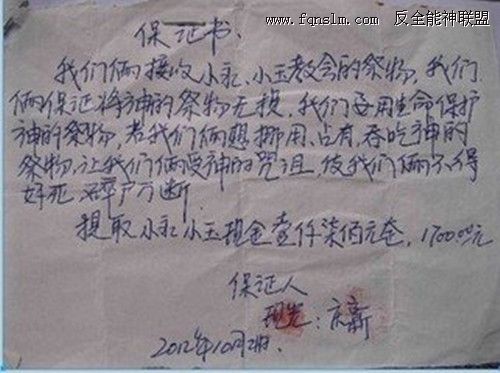 www.fqnslm.com 反全能神联盟
保证书、
我们俩接收小永、小玉教会的祭物,我们
俩保证将神的祭物无损,我们要用生命保护
神的祭物,若我们俩想挪用、占有、吞吃神的
祭物,让我们俩受神的咒诅,使我们俩不得
好死 碎尸万断
提取小永小玉现金壹仟柒佰元全,1700.00元
保证人
: 新
2012年10月2日、